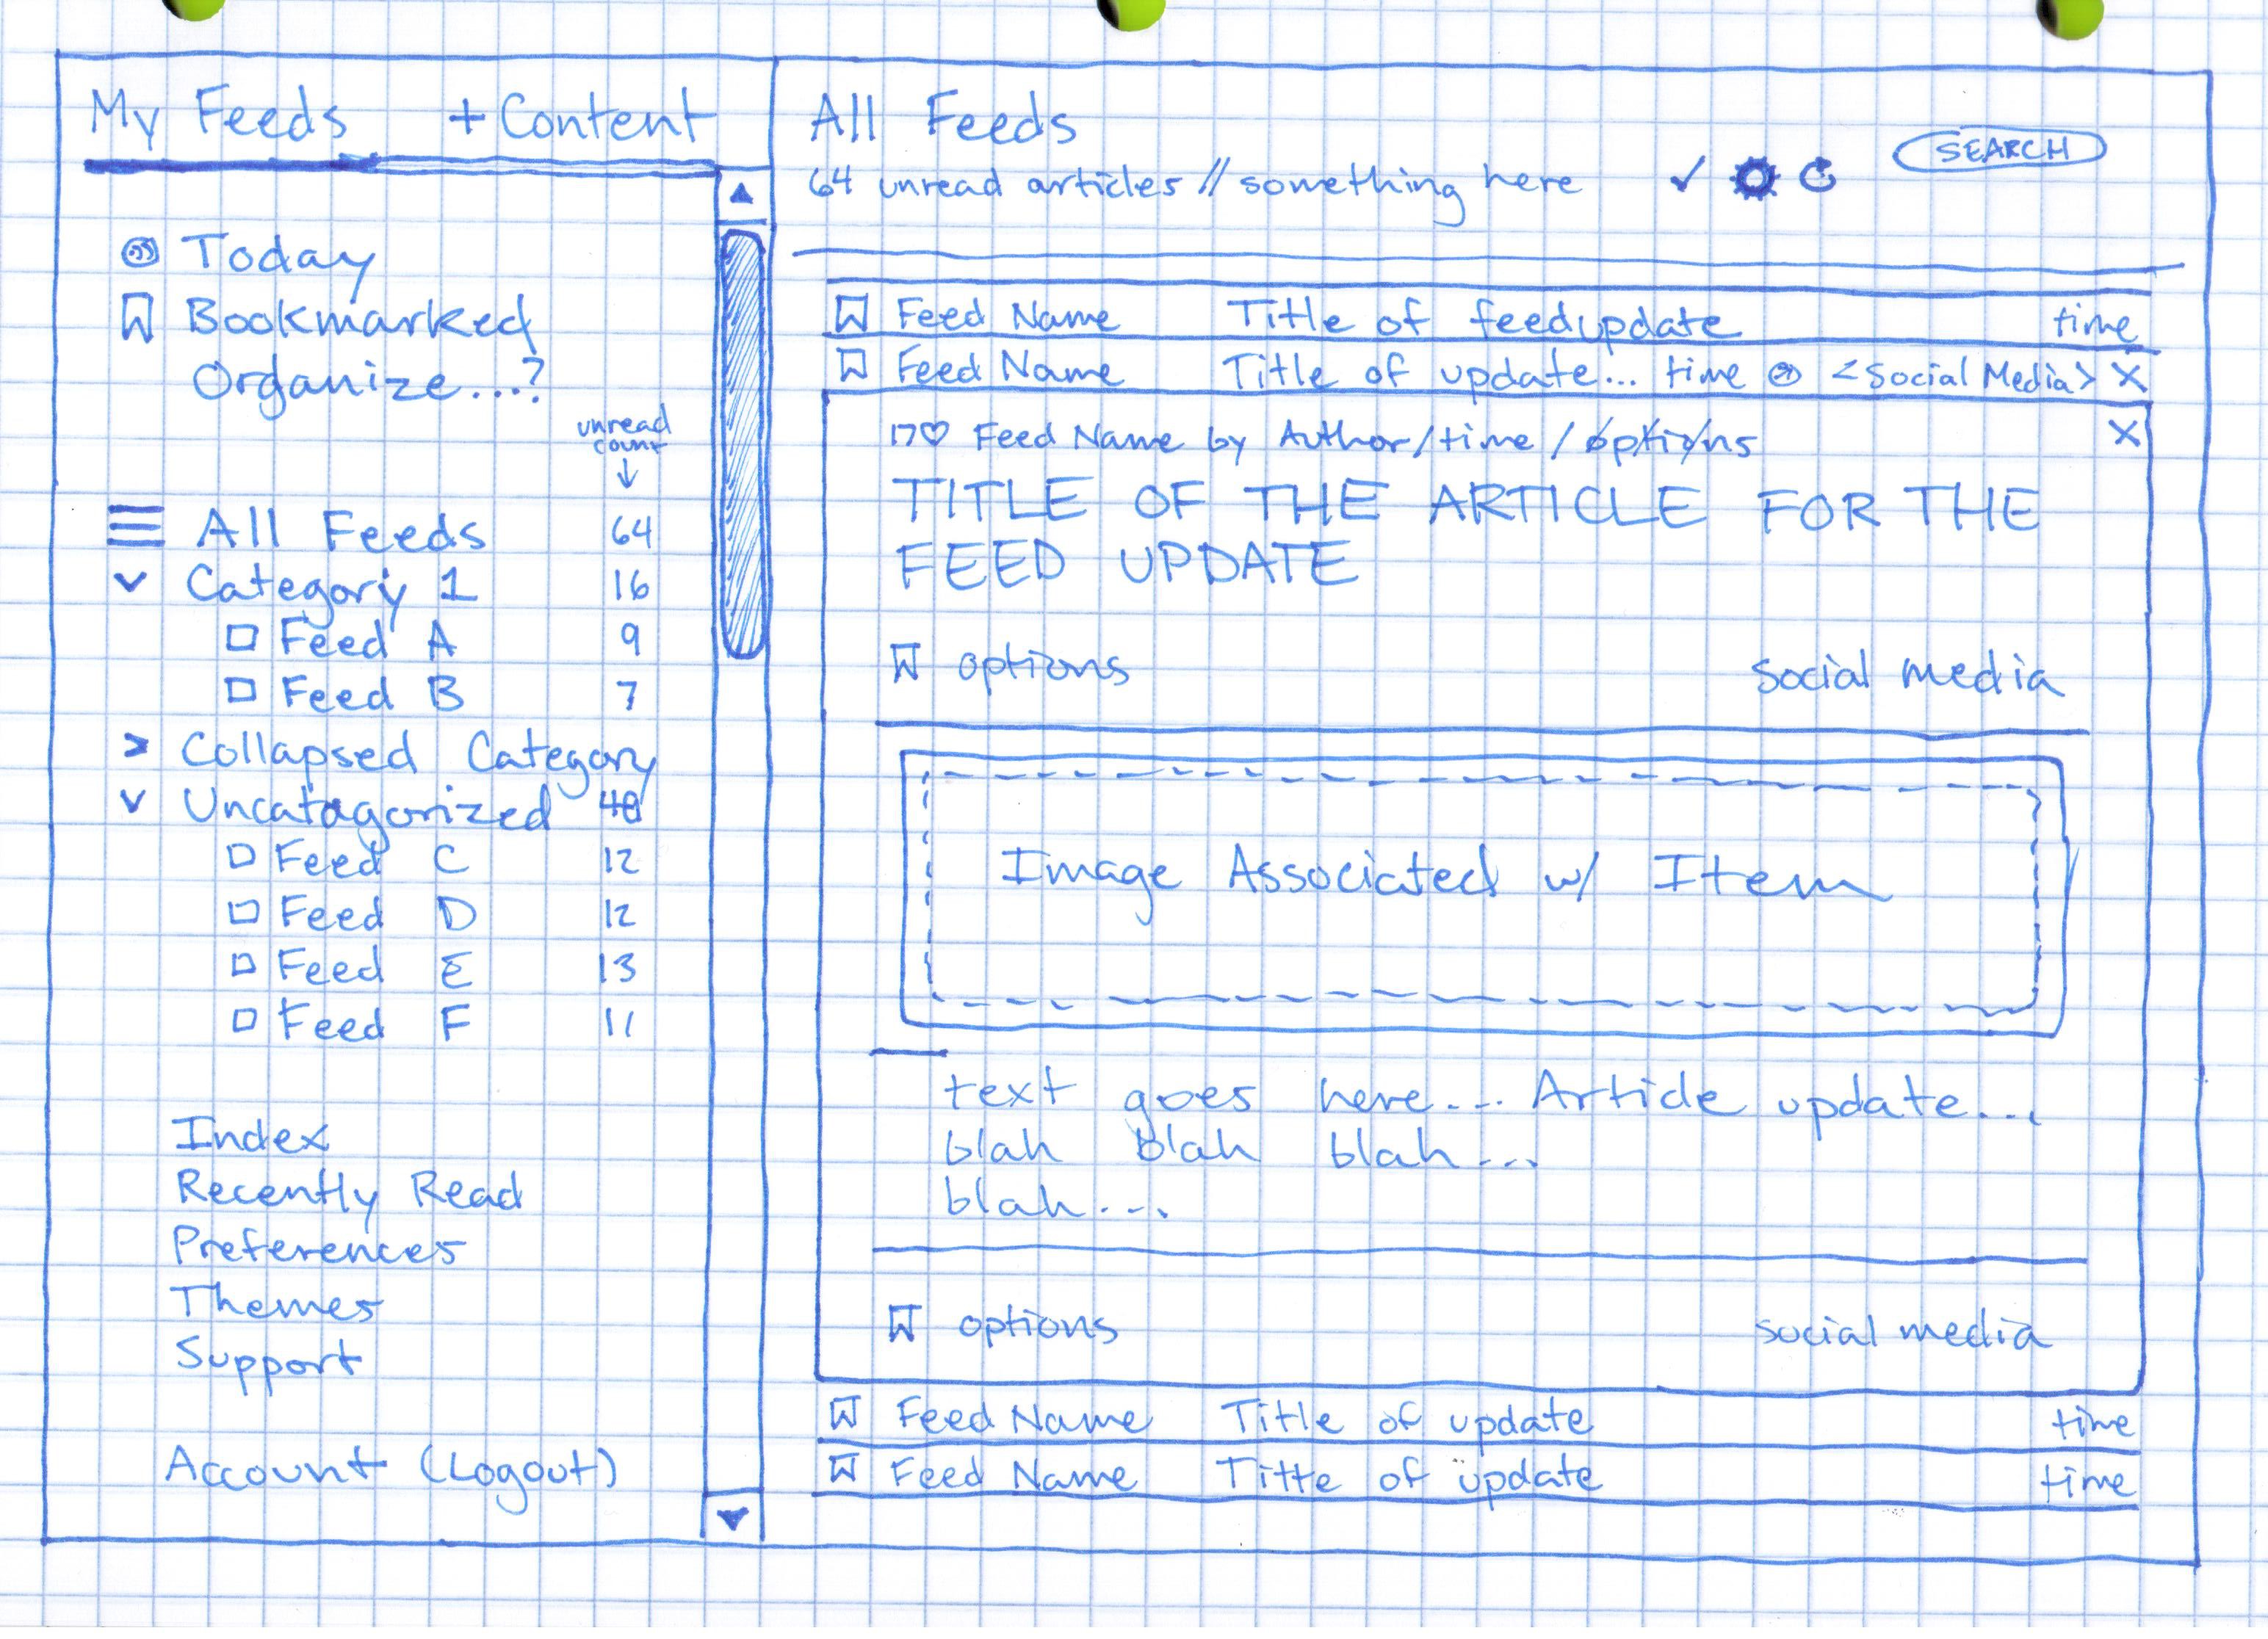 My Feeds + Content
Today
Bookmarked
Organize...?
unread
count
All Feeds 64
Category 1 16
Feed A 9
Feed B 7
Collapsed Category
Uncatagorized 48
Feed C 12
Feed D 12
Feed E 13
Feed F 11
Index
Recently Read
Preferences
Themes
Support
Account (Logout)
All Feeds
64 unread articles // something here
SEARCH
Feed Name Title of feedupdate time
Feed Name Title of update... time <Social Media> X
17♡ Feed Name by Author/time/options X
TITLE OF THE ARTICLE FOR THE
FEED UPDATE
options social media
Image Associated w/ Item
text goes here... Article update...
blah blah blah...
blah...
options social media
Feed Name Title of update time
Feed Name Title of update time